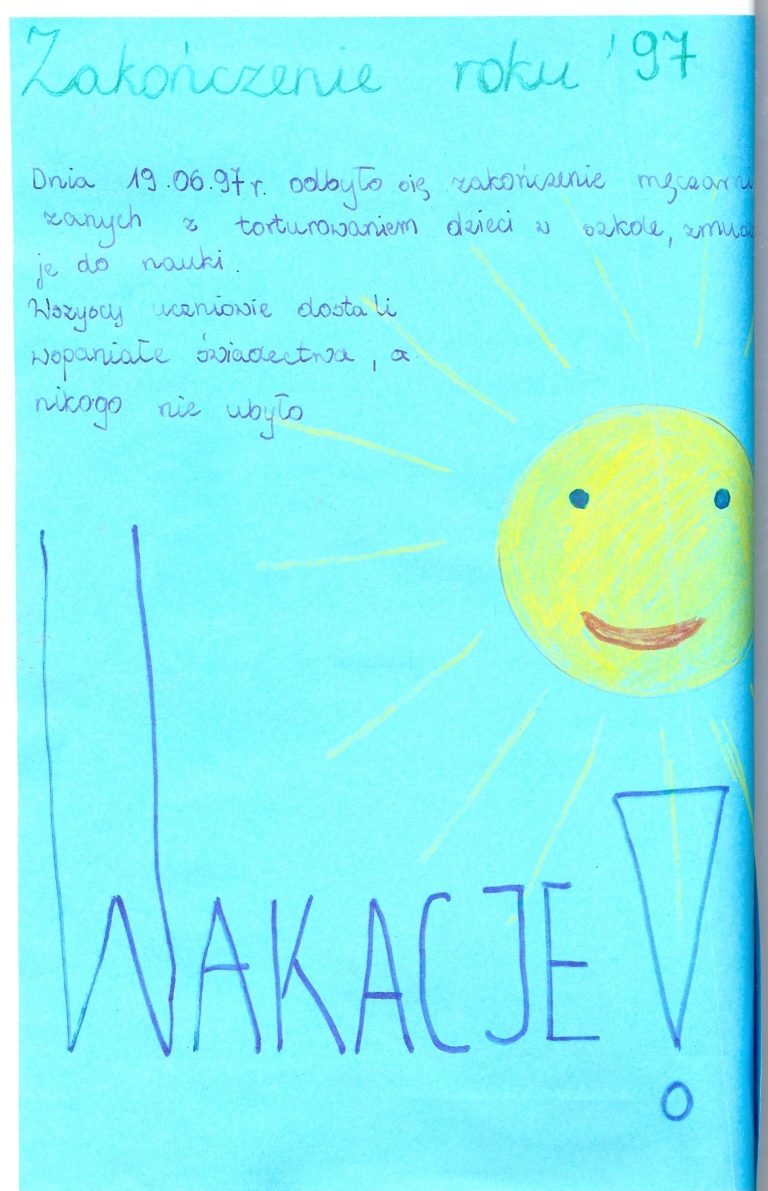 Zakończenie roku '97
Dnia 19.06.97r. odbyło się zakończenie męczarni
zanych z torturowaniem dzieci w szkole, zmusz
je do nauki.
Wszyscy uczniowie dostali
wopaniałe świadectwa, a
nikogo nie ubyło
WAKACJE!